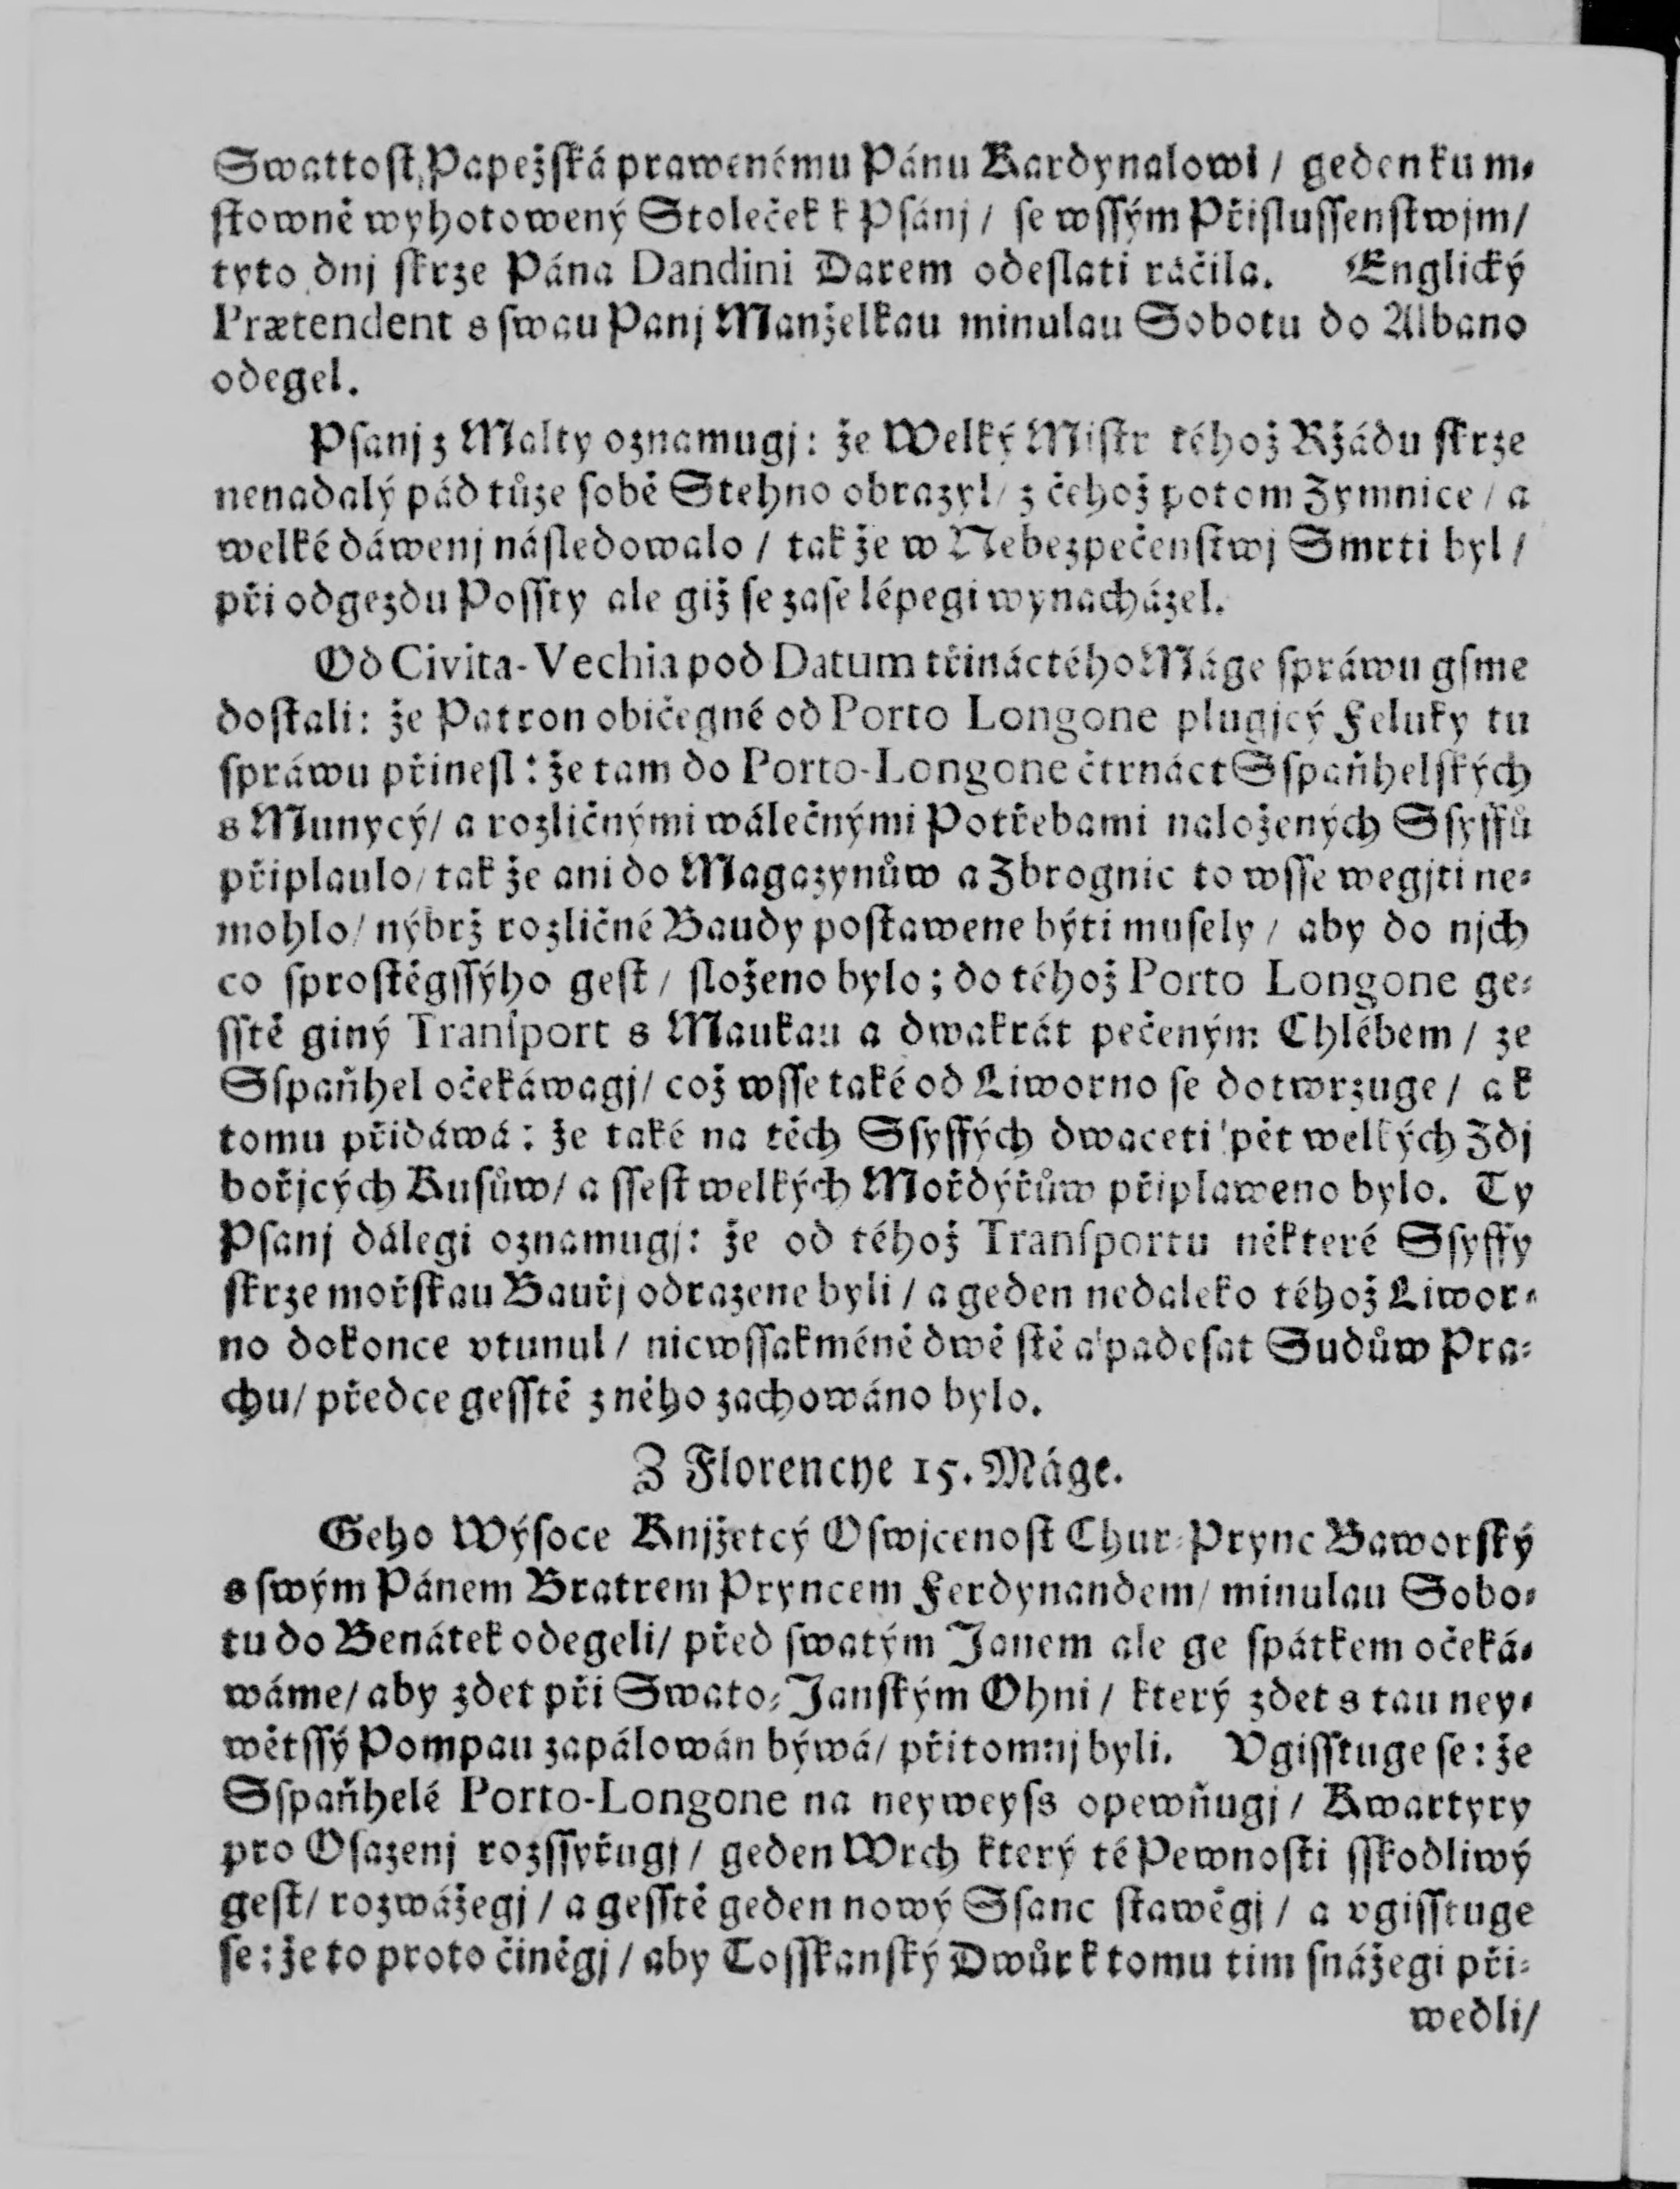 Swattoſt Papežſká prawenému Pánu Kardynalowi / geden kum⸗
ſtowně wyhotowený Stoleček k Pſánj / ſe wſſým Přiſluſſenſtwjm /
tyto dnj ſkrze Pána Dandini Darem odeſlati ráčila. Englický
Prætendent s ſwau Panj Manželkau minulau Sobotu do Albano
odegel.
Pſanj z Malty oznamugj: že Welký Miſtr téhož Ržádu ſkrze
nenadalý pád tůze ſobě Stehno obrazyl / z čehož potom Zymnice / a
welké dáwenj náſledowalo / tak že w Nebezpečenſtwj Smrti byl /
při odgezdu Poſſty ale giž ſe zaſe lépegi wynacházel.
Od Civita-Vechia pod Datum třináctého Máge ſpráwu gſme
doſtali: že Patron običegné od Porto Longone plugjcý Feluky tu
ſpráwu přineſl: že tam do Porto-Longone čtrnáct Sſpaňhelſkých
s Munycý / a rozličnými wálečnými Potřebami naložených Sſyffů
připlaulo / tak že ani do Magazynůw a Zbrognic to wſſe wegjti ne⸗
mohlo / nýbrž rozličné Baudy poſtawene býti muſely / aby do njch
co ſproſtěgſſýho geſt / ſloženo bylo; do téhož Porto Longone ge⸗
ſſtě giný Tranſport s Maukau a dwakrát pečeným Chlébem / ze
Sſpaňhel očekáwagj / což wſſe také od Liworno ſe dotwrzuge / a k
tomu přidáwá: že také na těch Sſyffých dwaceti pět welkých Zdj
bořjcých Kuſůw / a ſſeſt welkých Mořdýřůw připlaweno bylo. Ty
Pſanj dálegi oznamugj: že od téhož Tranſportu některé Sſyffy
ſkrze mořſkau Bauřj odrazene byli / a geden nedaleko téhož Liwor⸗
no dokonce vtunul / nicwſſakméně dwě ſtě a padeſat Sudůw Pra⸗
chu / předce geſſtě z něho zachowáno bylo.
Z Florencye 15. Máge.
Geho Wýſoce Knjžetcý Oſwjcenoſt Chur⸗Prync Baworſký
s ſwým Pánem Bratrem Pryncem Ferdynandem / minulau Sobo⸗
tu do Benátek odegeli / před ſwatým Janem ale ge ſpátkem očeká⸗
wáme / aby zdet při Swato⸗Janſkým Ohni / který zdet s tau ney⸗
wětſſý Pompau zapálowán býwá / přitomnj byli. Vgiſſtuge ſe: že
Sſpaňhelé Porto-Longone na neyweyſs opewňugj / Kwartyry
pro Oſazenj rozſſyřugj / geden Wrch který té Pewnoſti ſſkodliwý
geſt / rozwážegj / a geſſtě geden nowý Sſanc ſtawěgj / a vgiſſtuge
ſe: že to proto činěgj / aby Toſſkanſký Dwůr k tomu tim ſnážegi při⸗
wedli /